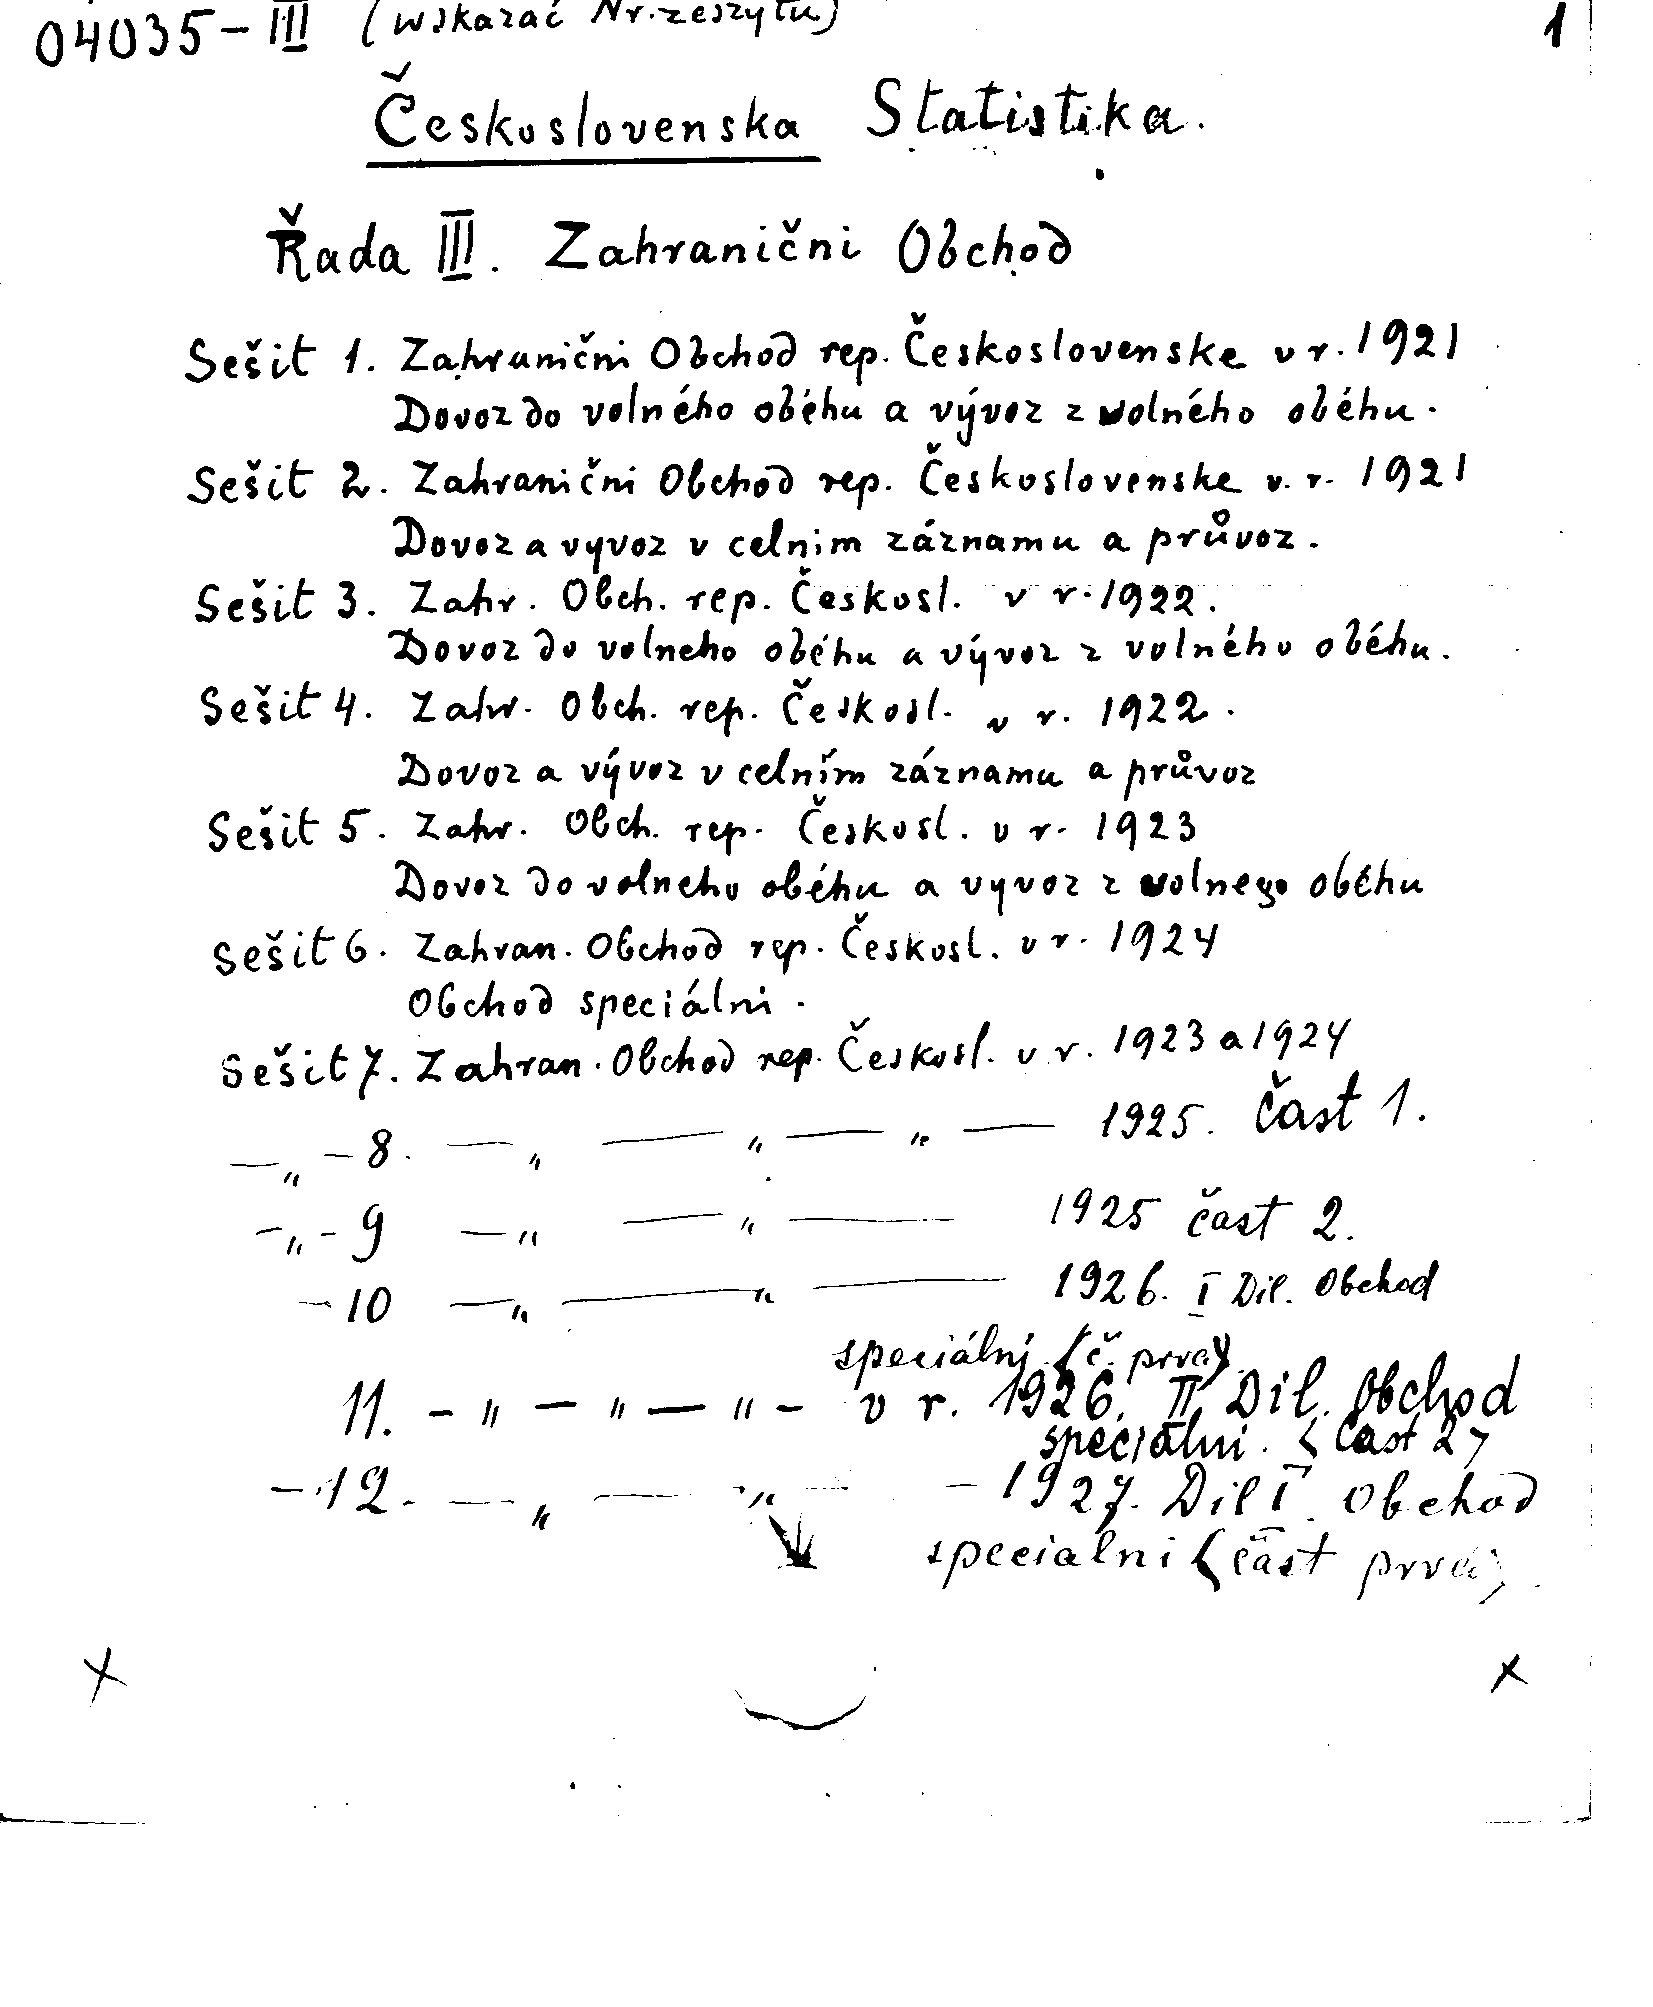 04035-III (wskazać Nr. zeszytu) 1
Československa Statistika.
Řada III. Zahranični Obchod
Sešit 1. Zahranični Obchod rep. Československe v r. 1921
Dovoz do volného oběhu a vývoz z volného oběhu.
Sešit 2. Zahranični Obchod rep. Československe v. r. 1921
Dovoz a vyvoz v celnim záznamu a průvoz.
Sešit 3. Zahr. Obch. rep. Českosl. v r. 1922.
Dovoz do volneho oběhu a vývoz z volného oběhu.
Sešit 4. Zahr. Obch. rep. Českosl. v r. 1922.
Dovoz a vývoz v celním záznamu a průvoz
Sešit 5. Zahr. Obch. rep. Českosl. v r. 1923
Dovoz do volneho oběhu a vyvoz z volnego oběhu
Sešit 6. Zahran. Obchod rep. Českosl. v r. 1924
Obchod speciálni.
Sešit 7. Zahran. Obchod rep. Českosl. v r. 1923 a 1924
— „ — 8. — „ — „ — „ — 1925. čast 1.
— „ — 9 — „ — „ — 1925 čast 2.
— 10 — „ — „ — 1926. I Dil. Obchod
speciálni (č. prvá)
11. — „ — „ — „ — v r. 1926. II Dil. Obchod
speciálni. (čast 2)
— 12. — „ — „ — — 1927. Dil I. Obchod
specialni (část prvá)